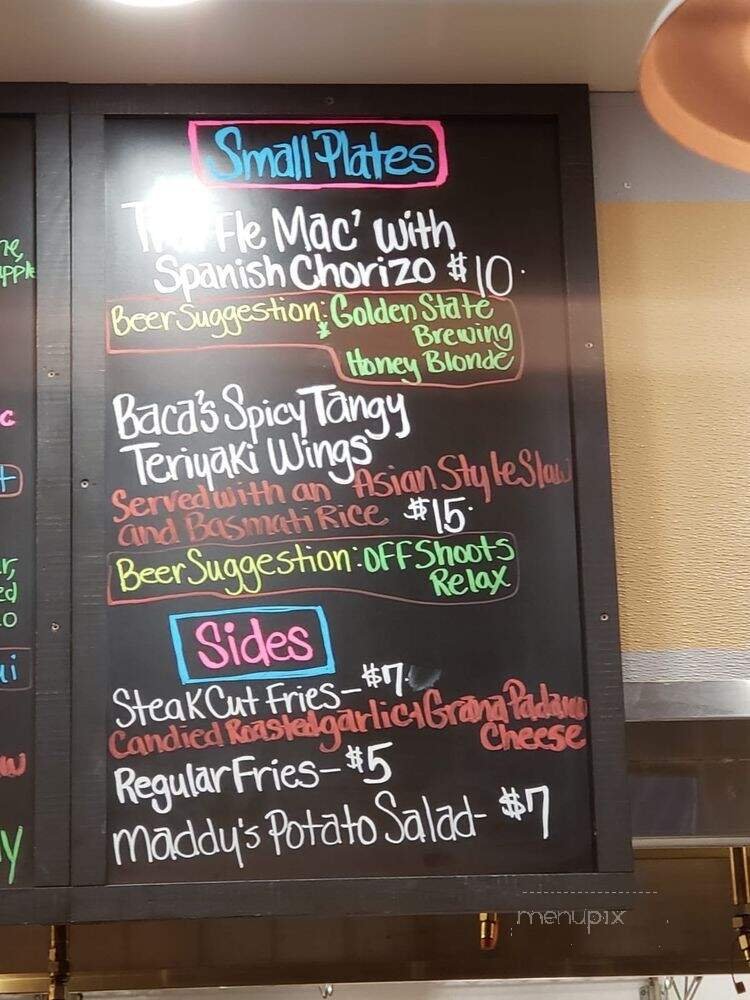 Small Plates
Truffle Mac' with
Spanish Chorizo $10.
Beer Suggestion: Golden State
Brewing
Honey Blonde
Baca's Spicy Tangy
Teriyaki Wings
Served with an Asian Style Slaw
and Basmati Rice $15.
Beer Suggestion: OFF Shoots
Relax
Sides
Steak Cut Fries - $7.
Candied Roasted garlic & Grana Padano
Cheese
Regular Fries - $5
Maddy's Potato Salad - $7
menupix